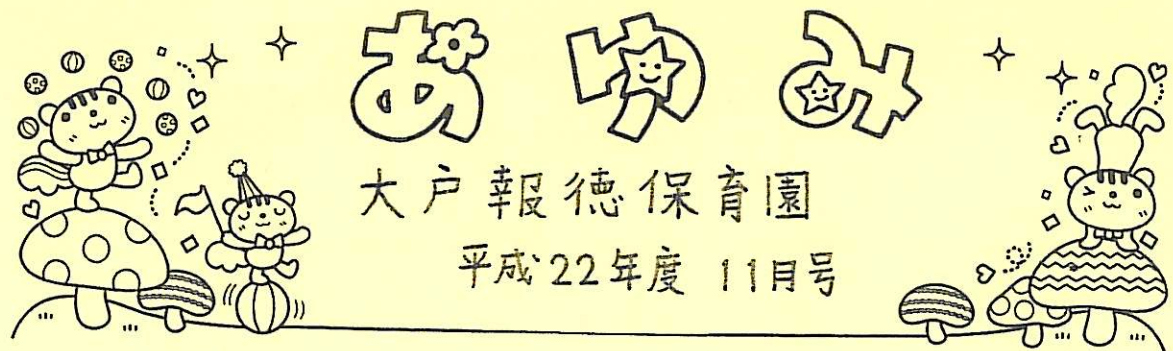 あゆみ
大戸報徳保育園
平成22年度 11月号